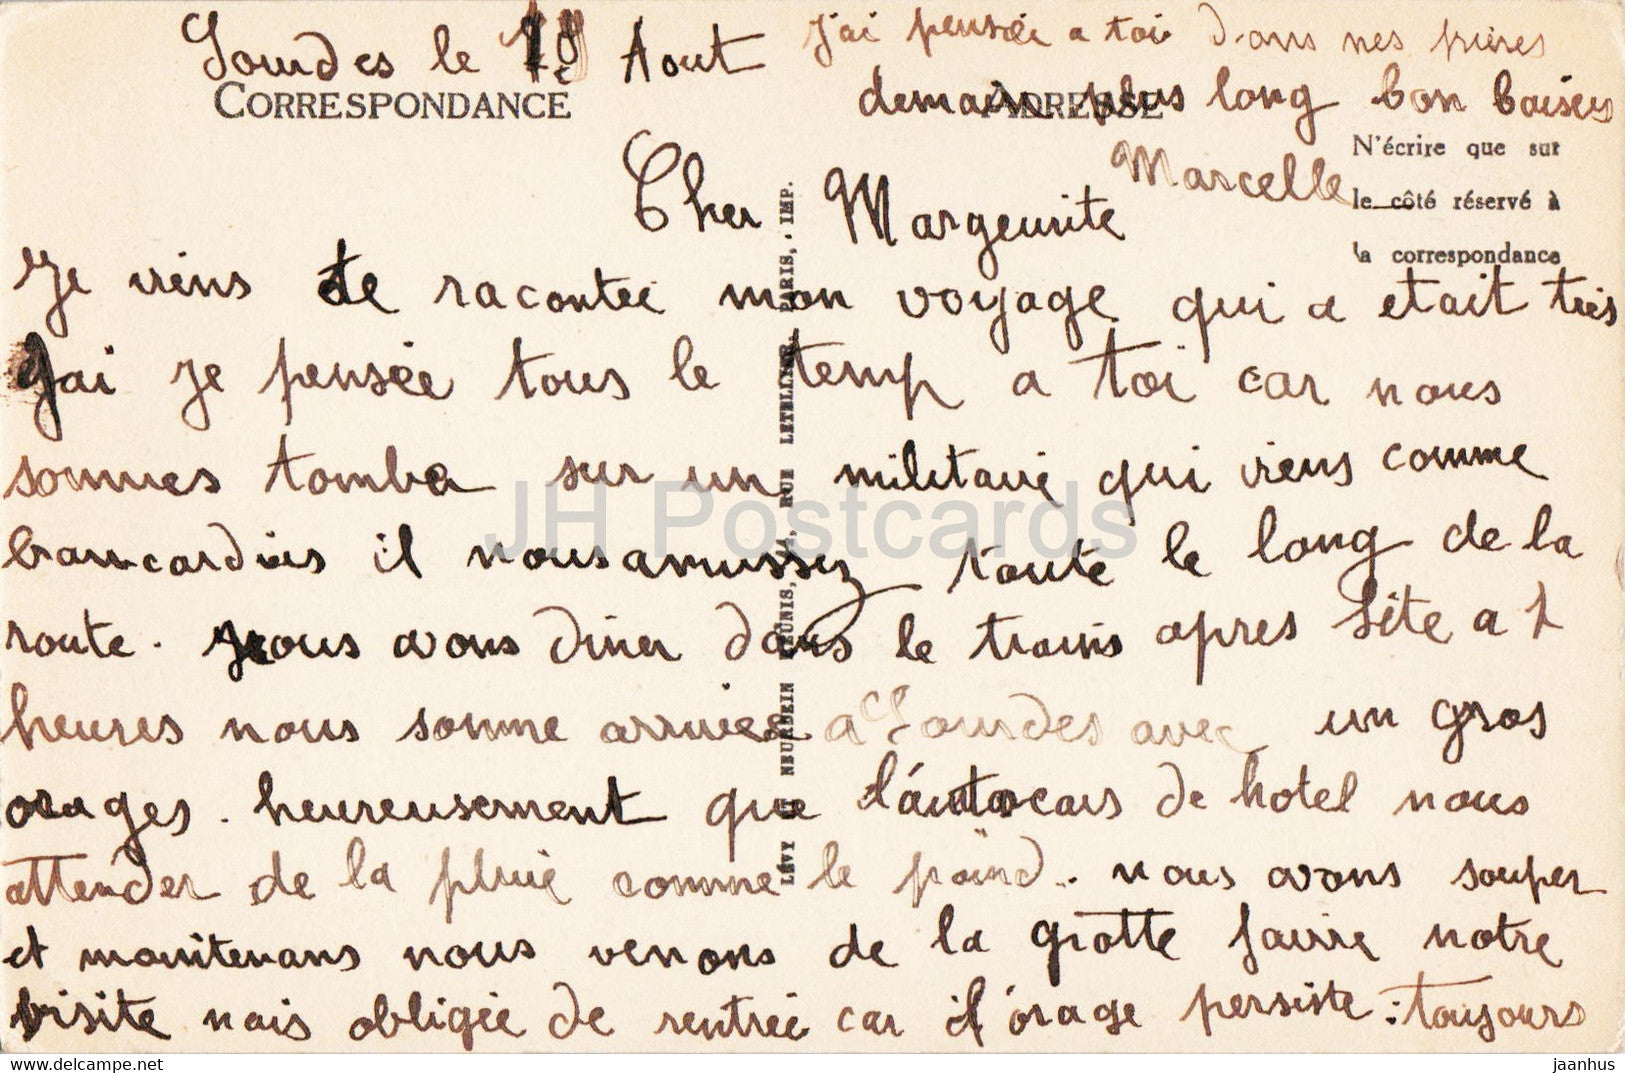 Lourdes le 18 Aout
CORRESPONDANCE
ADRESSE
N'écrire que sur
le côté réservé à
la correspondance
Cher Margeurite
Je viens de racontée mon voyage qui a etait très
gai je pensée tous le temp a toi car nous
sonmes tomber sur un militaire qui viens comme
brancardies il nous amussez toute le long de la
route. nous avons diner dans le trains apres site a 7
heures nous sonme arrivée a Lourdes avec un gros
orages. heureusement que l'autocars de hotel nous
attender de la pluie comme le poind.. nous avons souper
et maintenans nous venons de la grotte faire notre
visite mais obligée de rentrée car il orage persiste : toujours
j'ai pensée a toi dans mes prieres
demain plus long bon baisers
Marcelle
LÉVY ET NEURDEIN RÉUNIS, 44, RUE LETELLIER, PARIS, . IMP.
JH Postcards
www.jh-postcards.com
jaanhus